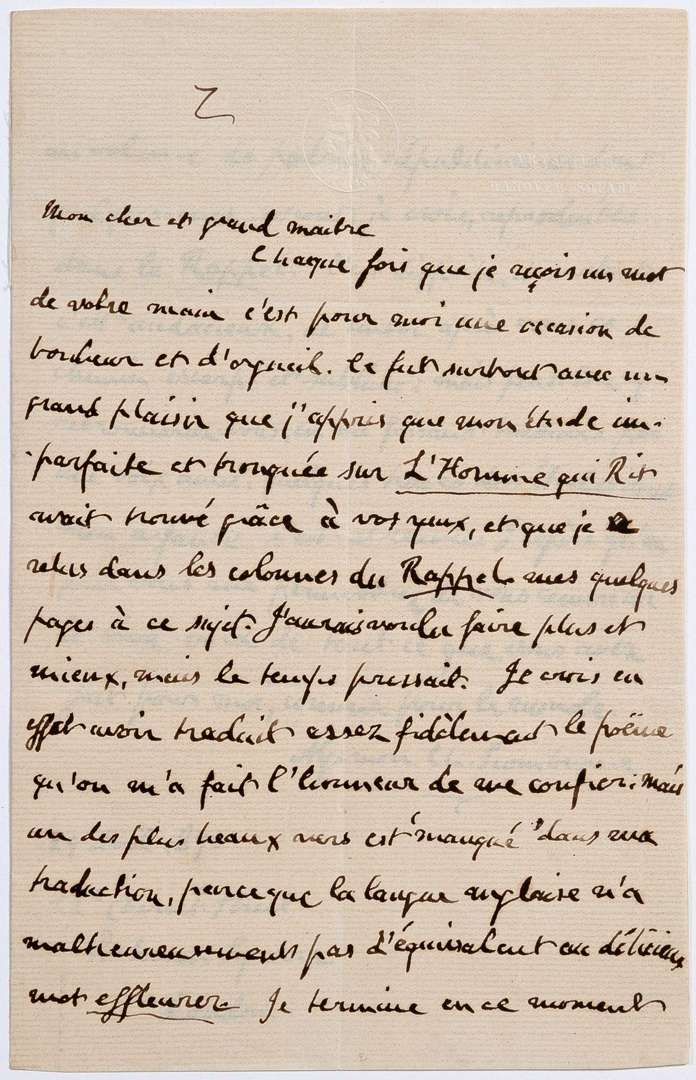 Mon cher et grand maitre
Chaque fois que je reçois un mot
de votre main c'est pour moi une occasion de
bonheur et d'orgueil. Ce fut surtout avec un
grand plaisir que j'appris que mon étude im-
-parfaite et tronquée sur L'Homme qui Rit
avait trouvé grâce à vos yeux, et que je
relus dans les colonnes du Rappel mes quelques
pages à ce sujet. J'aurais voulu faire plus et
mieux, mais le temps pressait. Je crois en
effet avoir traduit assez fidèlement le poëme
qu'on m'a fait l'honneur de me confier; mais
un des plus beaux vers est "manqué" dans ma
traduction, parceque la langue anglaise n'a
malheureusement pas d'équivalent au délicieux
mot effleurer. Je termine en ce moment